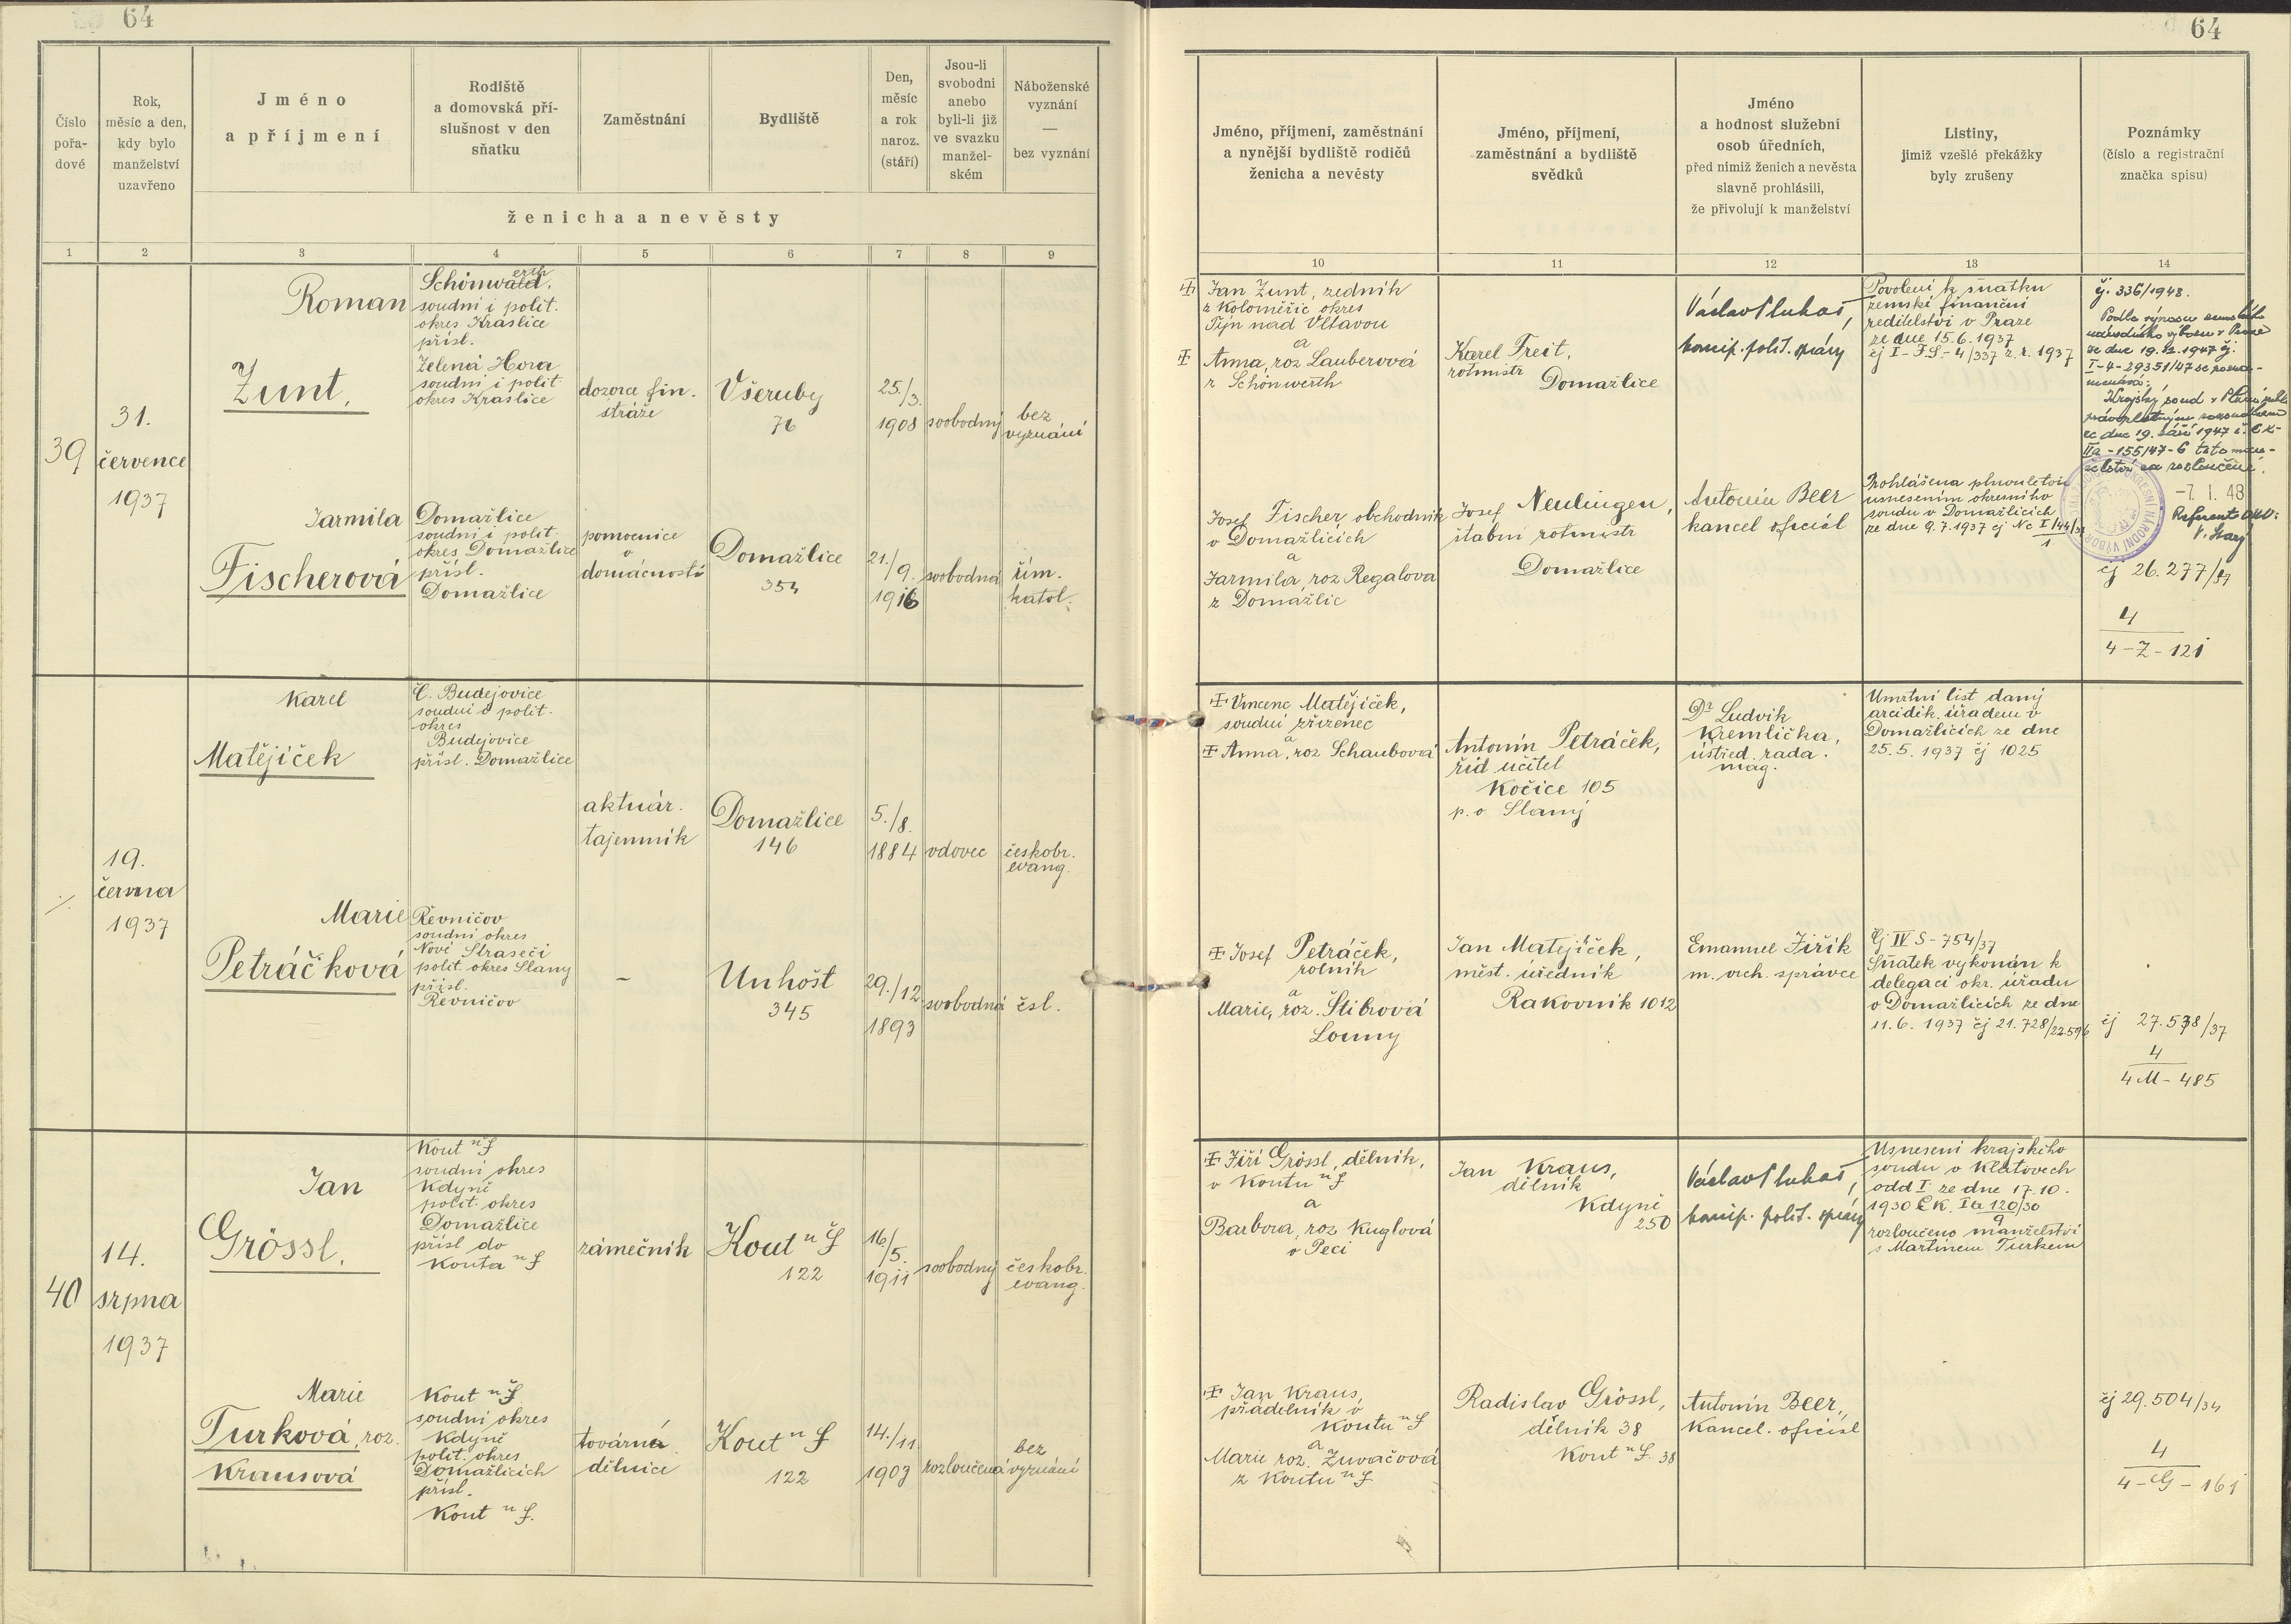 64
Číslo
pořa-
dové
Rok,
měsíc a den,
kdy bylo
manželství
uzavřeno
Jméno
a příjmení
Rodiště
a domovská pří-
slušnost v den
sňatku
Zaměstnání
Bydliště
Den,
měsíc
a rok
naroz.
(stáří)
Jsou-li
svobodni
anebo
byli-li již
ve svazku
manžel-
ském
Náboženské
vyznání
—
bez vyznání
ženicha a nevěsty
1 2 3 4 5 6 7 8 9
39
31.
července
1937
Roman
Žunt,
Schönwerth
soudní i polit.
okres Kraslice
přísl.
Zelená Hora
soudní i polit.
okres Kraslice
dozorce fin.
stráže
Všeruby
76
25./3.
1908
svobodný
bez
vyznání
Jarmila
Fischerová
Domažlice
soudní i polit.
okres Domažlice
přísl.
Domažlice
pomocnice
v
domácnosti
Domažlice
354
21./9.
1916
svobodná
řím.
katol.
19.
června
1937
Karel
Matějíček
Č. Budejovice
soudní i polit.
okres
Budejovice
přísl. Domažlice
aktuár.
tajemník
Domažlice
146
5./8.
1884
vdovec
českobr.
evang.
Marie
Petráčková
Řevničov
soudní okres
Nové Strašecí
polit. okres Slany
přísl.
Řevničov
–
Unhošt
345
29./12.
1893
svobodná
čsl.
40
14.
srpna
1937
Jan
Grössl.
Kout n/Š
soudní okres
Kdyně
polit. okres
Domažlice
přísl do
Kouta n/Š
zámečník
Kout n/Š
122
16/5.
1911
svobodný
českobr.
evang.
Marie
Turková, roz.
Krausová
Kout n/Š
soudní okres
Kdyně
polit. okres
Domažlicích
přísl.
Kout n/Š.
tovární
dělnice
Kout n/Š
122
14./11.
1903
rozloučená
bez
vyznání
64
Jméno, příjmení, zaměstnání
a nynější bydliště rodičů
ženicha a nevěsty
Jméno, příjmení,
zaměstnání a bydliště
svědků
Jméno
a hodnost služební
osob úředních,
před nimiž ženich a nevěsta
slavně prohlásili,
že přivolují k manželství
Listiny,
jimiž vzešlé překážky
byly zrušeny
Poznámky
(číslo a registrační
značka spisu)
10 11 12 13 14
Jan Žunt, zedník
z Koloměřic okres
Týn nad Vltavou
a
Anna, roz Lauberová
z Schönwerth
Karel Freit,
rotmistr
Domažlice
Václav Pluhař,
koncip. polit. správy
Povolení k sňatku
zemské finanční
ředitelství v Praze
ze dne 15.6.1937
čj I-F.S.-4/337 z. r. 1937
čj. 336/1948.
Podle výnosu zemského
národního výboru v Praze
ze dne 19.12.1947 čj.
I-4-29351/47 se pozna-
menává:
Krajský soud v Plzni
právoplatným rozsudkem
ze dne 19. září 1947 č. Ck-
IIa-155/47-6 toto man-
želství za rozloučené.
-7. I. 48
Referent ONV:
V. Starý
Josef Fischer obchodník
v Domažlicích
a
Jarmila, roz Regalova
z Domažlic
Josef Neulingen,
štábní rotmistr
Domažlice
Antonín Beer
kancel oficiál
Prohlášena plnoletou
usnesením okresního
soudu v Domažlicích
ze dne 9.7.1937 čj Nc I/44/37
1
čj 26.277/37
4
4-Z-121
Vincenc Matějíček,
soudní zřízenec
a
Anna, roz Schaubová
Antonín Petráček,
říd učitel
Kočice 105
p. o Slaný
Dr Ludvik
Kremlička,
ústřed. rada.
mag.
Umrtní list daný
arcidik. úřadem v
Domažlicích ze dne
25.5.1937 čj 1025
Josef Petráček,
rolník
a
Marie, roz. Štibrová
Louny
Jan Matejíček,
měst. úředník
Rakovník 1012
Emanuel Jiřík
m. vrch. správce
Čj IV S-754/37
Sňatek vykonán k
delegaci okr. úřadu
v Domažlicích ze dne
11.6.1937 čj 21.728/22596
čj 27.538/37
4
4 M-485
Jiří Grössl, dělník,
v Koutu n/Š
a
Barbora, roz Kuglová
v Peci
Jan Kraus,
dělník
Kdyně
250
Václav Pluhař,
koncip. polit. správy
Usnesení krajského
soudu v Klatovech
odd I. ze dne 17.10.
1930 Č.K. Ia 120/30
9
rozloučeno manželství
s Martinem Turkem
Jan Kraus,
přadelník v
Koutu n/Š
a
Marie roz. Žuvačová
z Koutu n/Š
Radislav Grössl,
dělník 38
Kout n/Š. 38
Antonín Beer,
Kancel. oficiál
čj 29.504/34
4
4-G-161